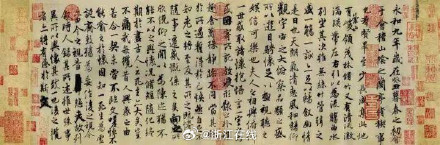 永和九年歲在癸丑暮春之初會
于會稽山陰之蘭亭脩稧事
也群賢畢至少長咸集此地
有崇山峻領茂林脩竹又有清流激
湍暎帶左右引以為流觴曲水
列坐其次雖無絲竹管弦之
盛一觴一詠亦足以暢敘幽情
是日也天朗氣清惠風和暢仰
觀宇宙之大俯察品類之盛
所以遊目騁懷足以極視聽之
娛信可樂也夫人之相與俯仰
一世或取諸懷抱悟言一室之內
或因寄所託放浪形骸之外雖
趣舍萬殊靜躁不同當其欣
於所遇蹔得於己怏然自足不
知老之將至及其所之既惓情
隨事遷感慨係之矣向之所
欣俛仰之閒以為陳迹猶不
能不以之興懷況脩短隨化終
期於盡古人云死生亦大矣豈
不痛哉每攬昔人興感之由
若合一契未嘗不臨文嗟悼不
能喻之於懷固知一死生為虛
誕齊彭殤為妄作後之視今
亦由今之視昔悲夫故列
敘時人錄其所述雖世殊事
異所以興懷其致一也後之攬
者亦將有感於斯文
@浙江在线